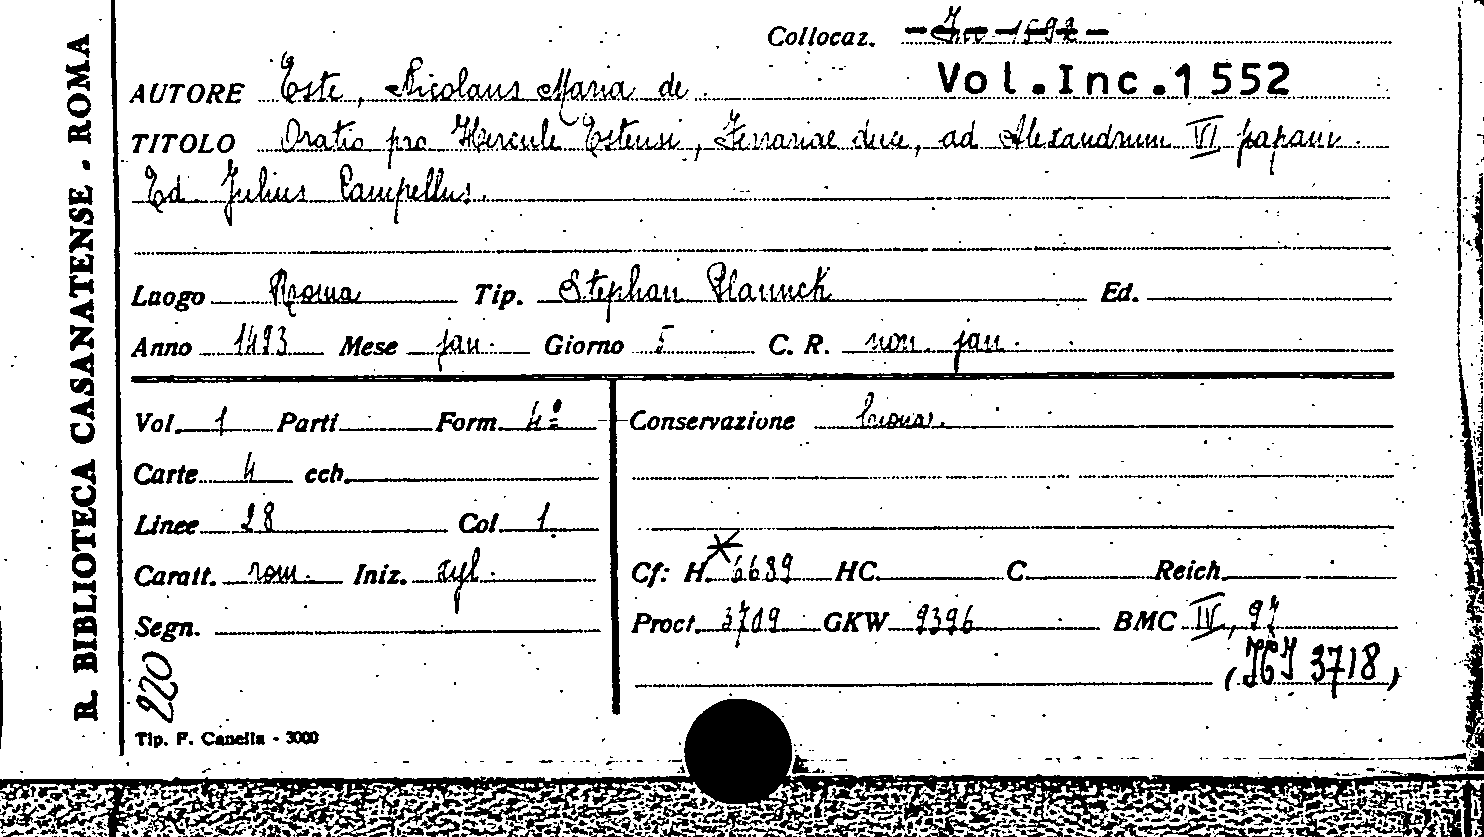 R. BIBLIOTECA CASANATENSE - ROMA
Collocaz. Inc 1592
Vol.Inc.1552
AUTORE Este, Nicolaus Maria de.
TITOLO Oratio pro Hercule Estensi, Ferrariae duce, ad Alexandrum VI papam.
Ed. Julius Campellus.
Luogo Roma Tip. Stephan Plannck Ed.
Anno 1493 Mese jan. Giorno 5 C. R. non. jan.
Vol. 1 Parti Form. 4º Conservazione buona.
Carte 4 cch.
Linee 28 Col. 1
Caratt. rom. Iniz. xyl. Cf: H. *6689 HC. C. Reich.
Segn. Proct. 3709 GKW 9396 BMC IV, 97
(IGI 3718)
220
Tip. F. Canella - 3000